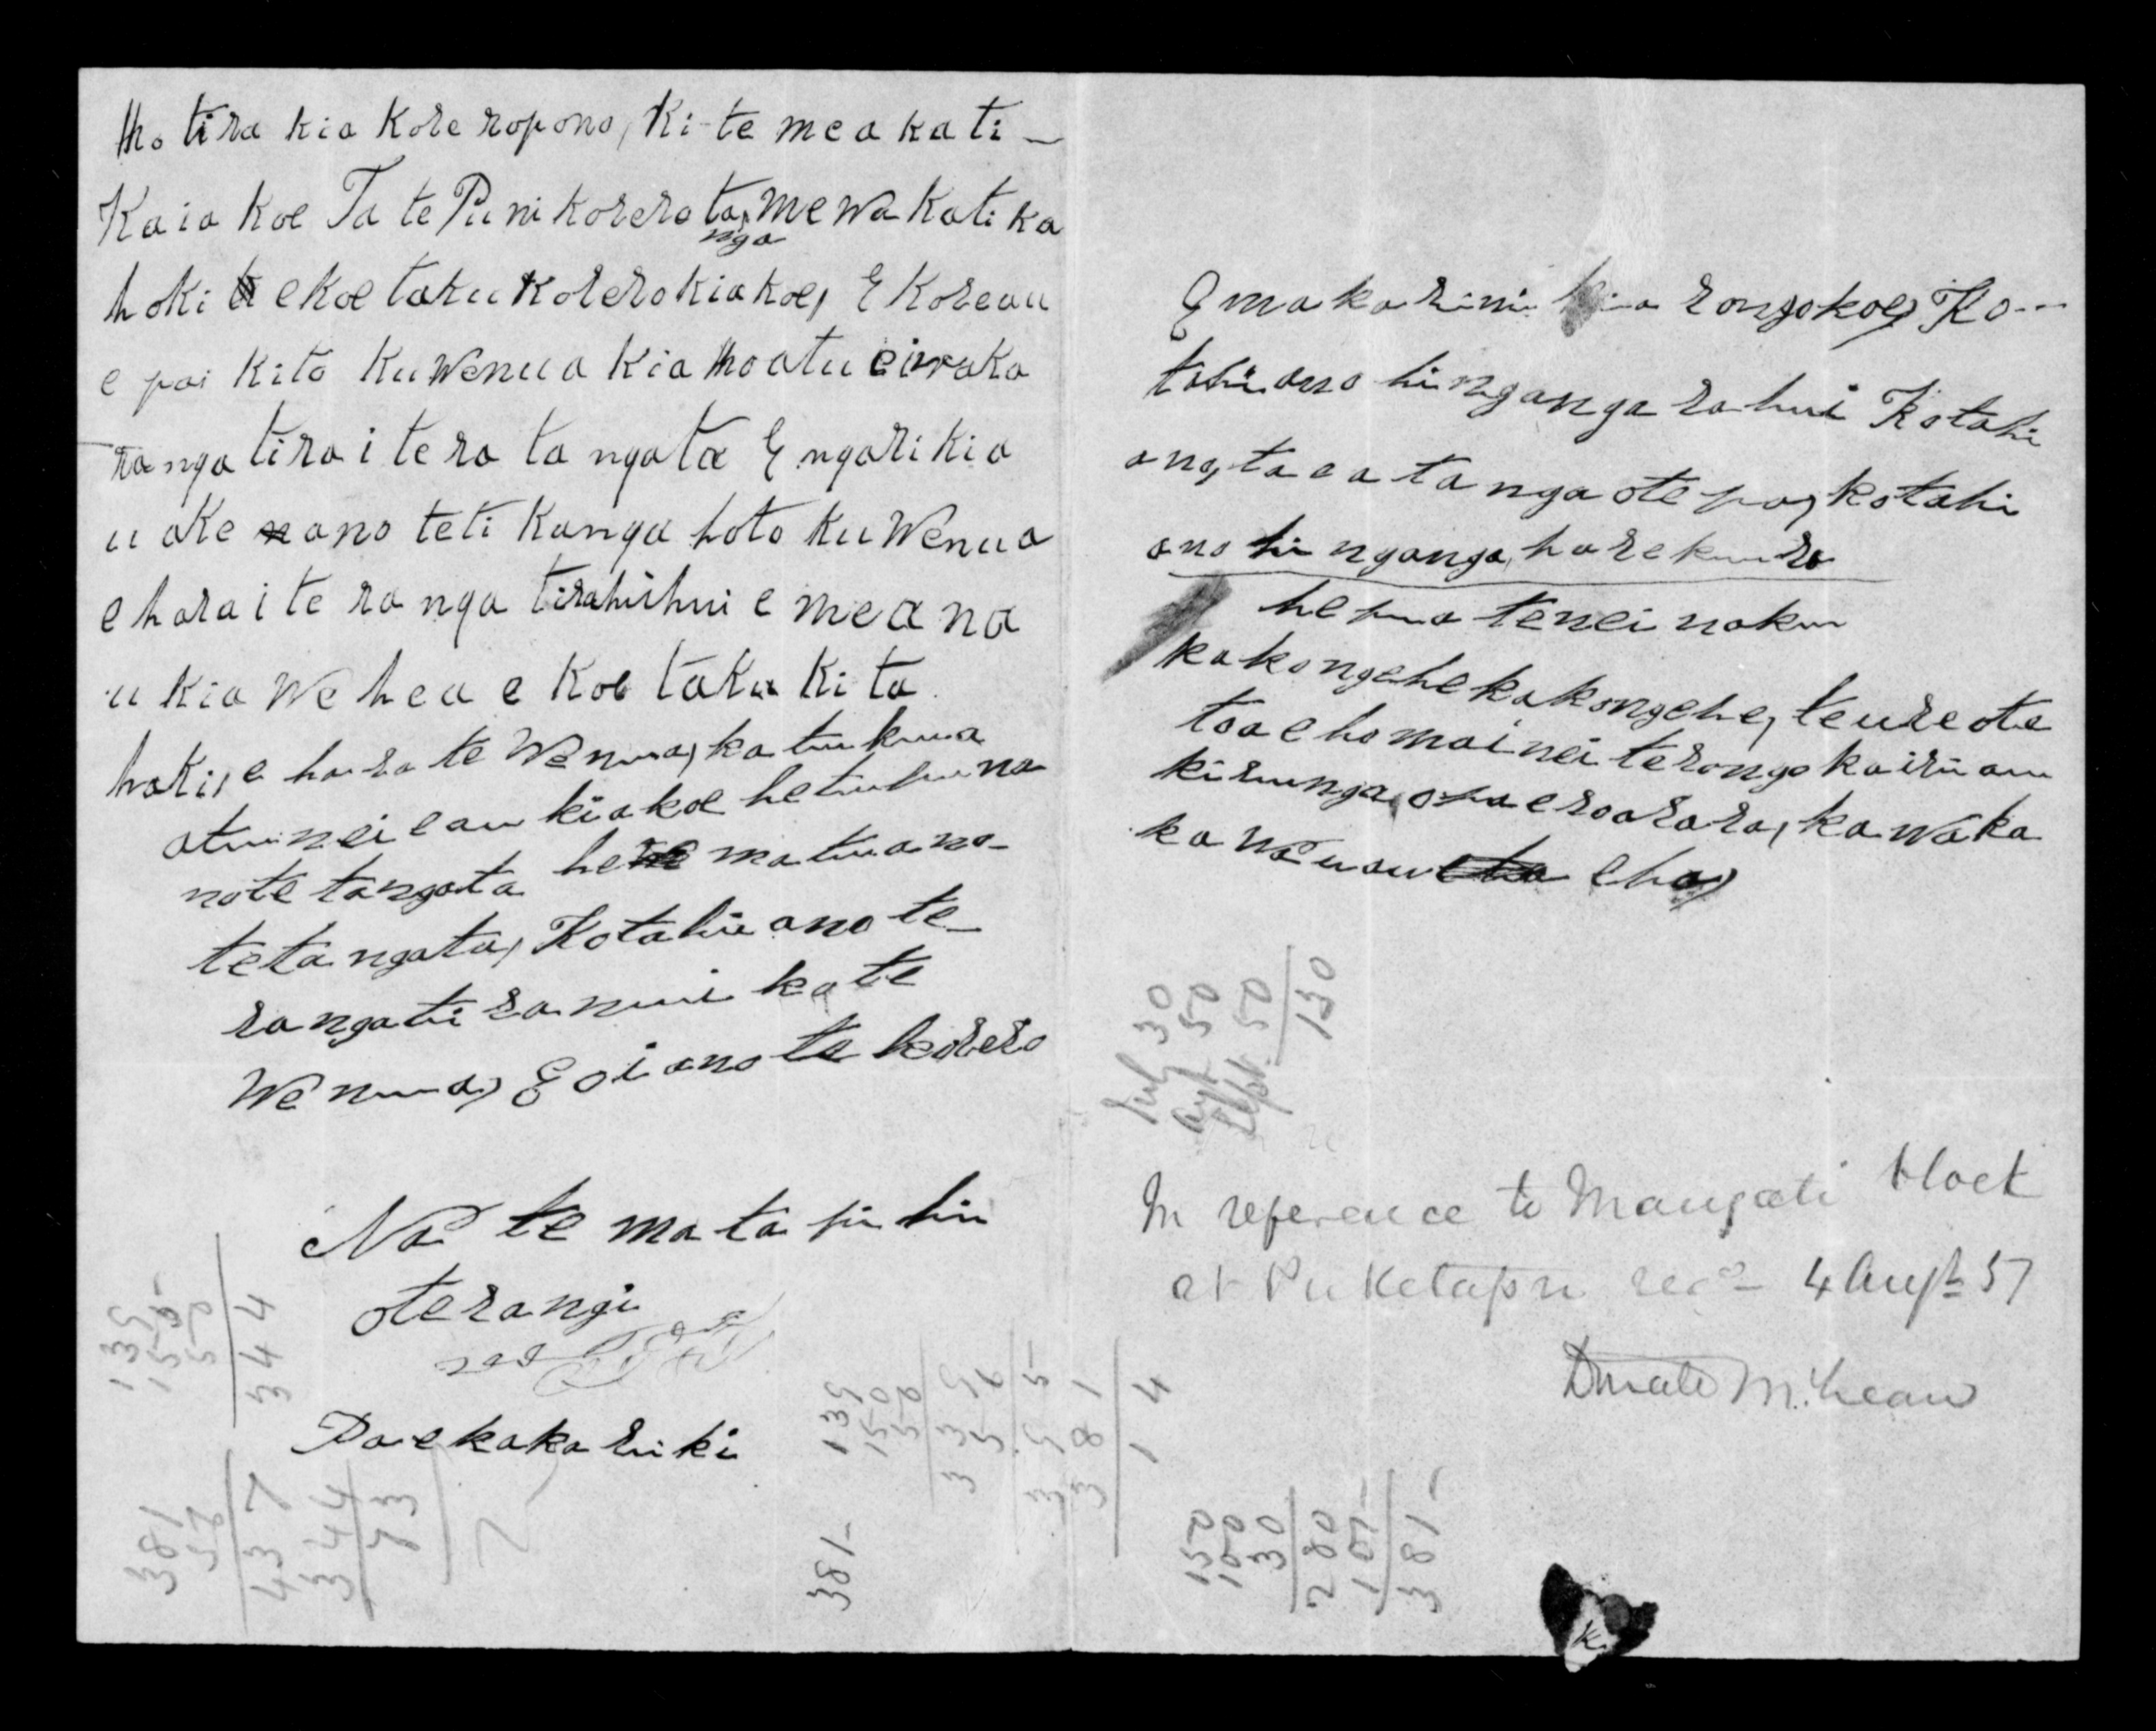 Mo tira kia kore ropono, Ki te mea kati-
Kaia koe Ta te Puni korero ta, me wa Kati ka
nga
hoki e koe taku korero kia koe, E Koreau
e pai Kito Ku Wenua Kia Mo atu
ranga tira i te ra ta ngata E ngari kia
u ake ano te ti Kanga hoto Ku Wenua
e hara i te ra nga tira hi hui e mea na
u Kia We he a e Koe taku Ki ta
hoki, e ha ra te We nua, ka tu ku a
atu nei e au ki a koe he tu pu na
no te tangata he ma tu a no-
te ta ngata, Kotahi ano te-
rangati ra nui ka te
We nua, E oi ano te korero
Na te ma ta pi hi
ote rangi
Pae kaka ri ki
E ma ka ri ni kia rongo koe, Ko--
tahi ano hi nganga ra hui Kotahi
ano, ta e a ta nga ote po, kotahi
ano hi nganga, ha re ku ra
he pu a tenei naku
ka ko ngehe ka ko ngehe, te ure ote
toa e ho mai nei te rongo ka iri au
ki runga, o pa e roa ra ra, ka waka
ka We u au e ha,
July 30
Augt 50
Sept. 50
130
In reference to Mangati block
at Puketapu recd 4 Augt 57
Donald McLean
139
155
50
344
381
56
437
344
93
139
150
50
381-
150
100
30
280
101-
381-